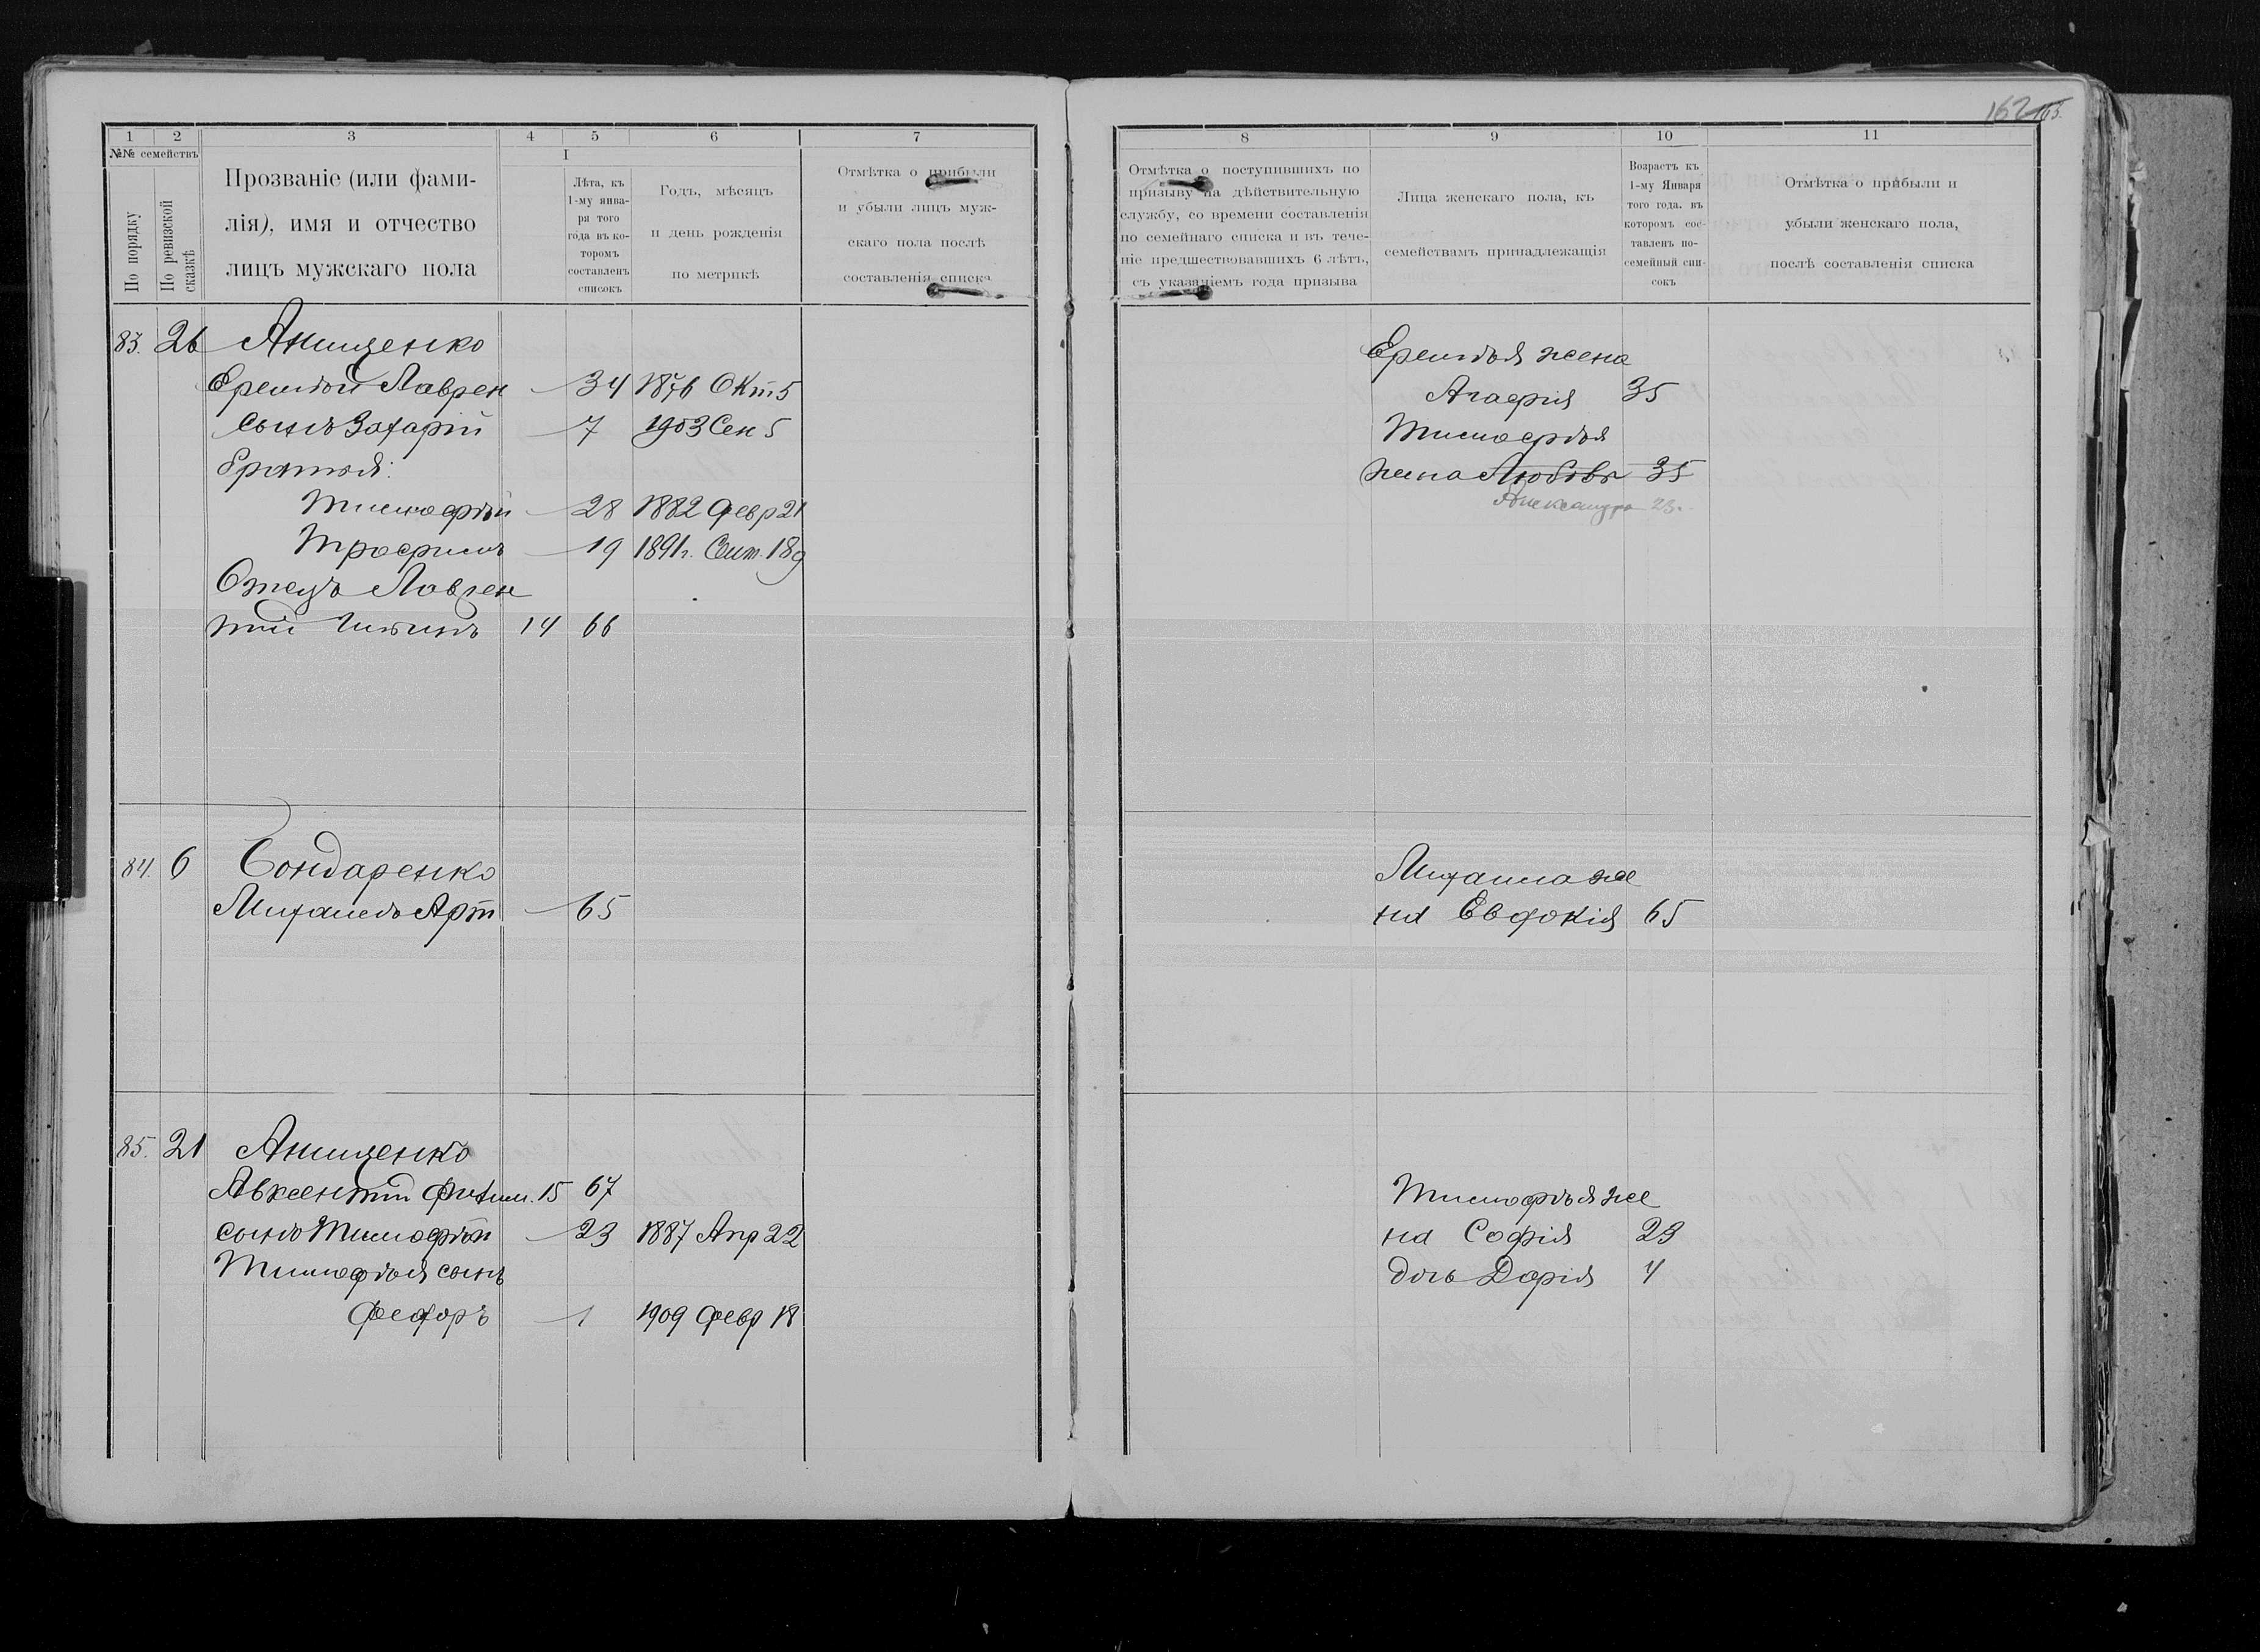 162
1 2 3 4 5 6 7
№№ семействъ
По порядку
По ревизской сказкѣ
Прозваніе (или фами-
лія), имя и отчество
лицъ мужскаго пола
I
Лѣта, къ
1-му янва-
ря того
года въ ко-
торомъ
составленъ
списокъ
Годъ, мѣсяцъ
и день рожденія
по метрикѣ
Отмѣтка о прибыли
и убыли лицъ муж-
скаго пола послѣ
составленія списка
83. 26 Анищенко
Еремѣй Лаврен — 34 1876 Окт 5
сынъ Захарій — 7 1903 Сен 5
братья:
Тимофѣй — 28 1882 Февр 21
Трофимъ — 19 1891г. Сент. 18
Отецъ Лаврен
тій 14 66
84. 6 Бондаренко
Михаилъ Арт — 65
85. 21 Анищенко
Авксентій 15 67
сынъ Тимофѣй — 23 1887 Апр 22
Тимофѣя сынъ
Федоръ — 1 1909 Февр 18
8 9 10 11
Отмѣтка о поступившихъ по
призыву на дѣйствительную
службу, со времени составленія
по семейнаго списка и въ тече-
ніе предшествовавшихъ 6 лѣтъ,
съ указаніемъ года призыва
Лица женскаго пола, къ
семействамъ принадлежащія
Возрастъ къ
1-му Января
того года, въ
которомъ сос-
тавленъ по-
семейный спи-
сокъ
Отмѣтка о прибыли и
убыли женскаго пола,
послѣ составленія списка
Еремѣя жена
Агафія 35
Тимофѣя
жена Любовь 35
Александра 23.
Михаила же
на Евдокія 65
Тимофѣя же
на Софія 23
дочь Дарія 4